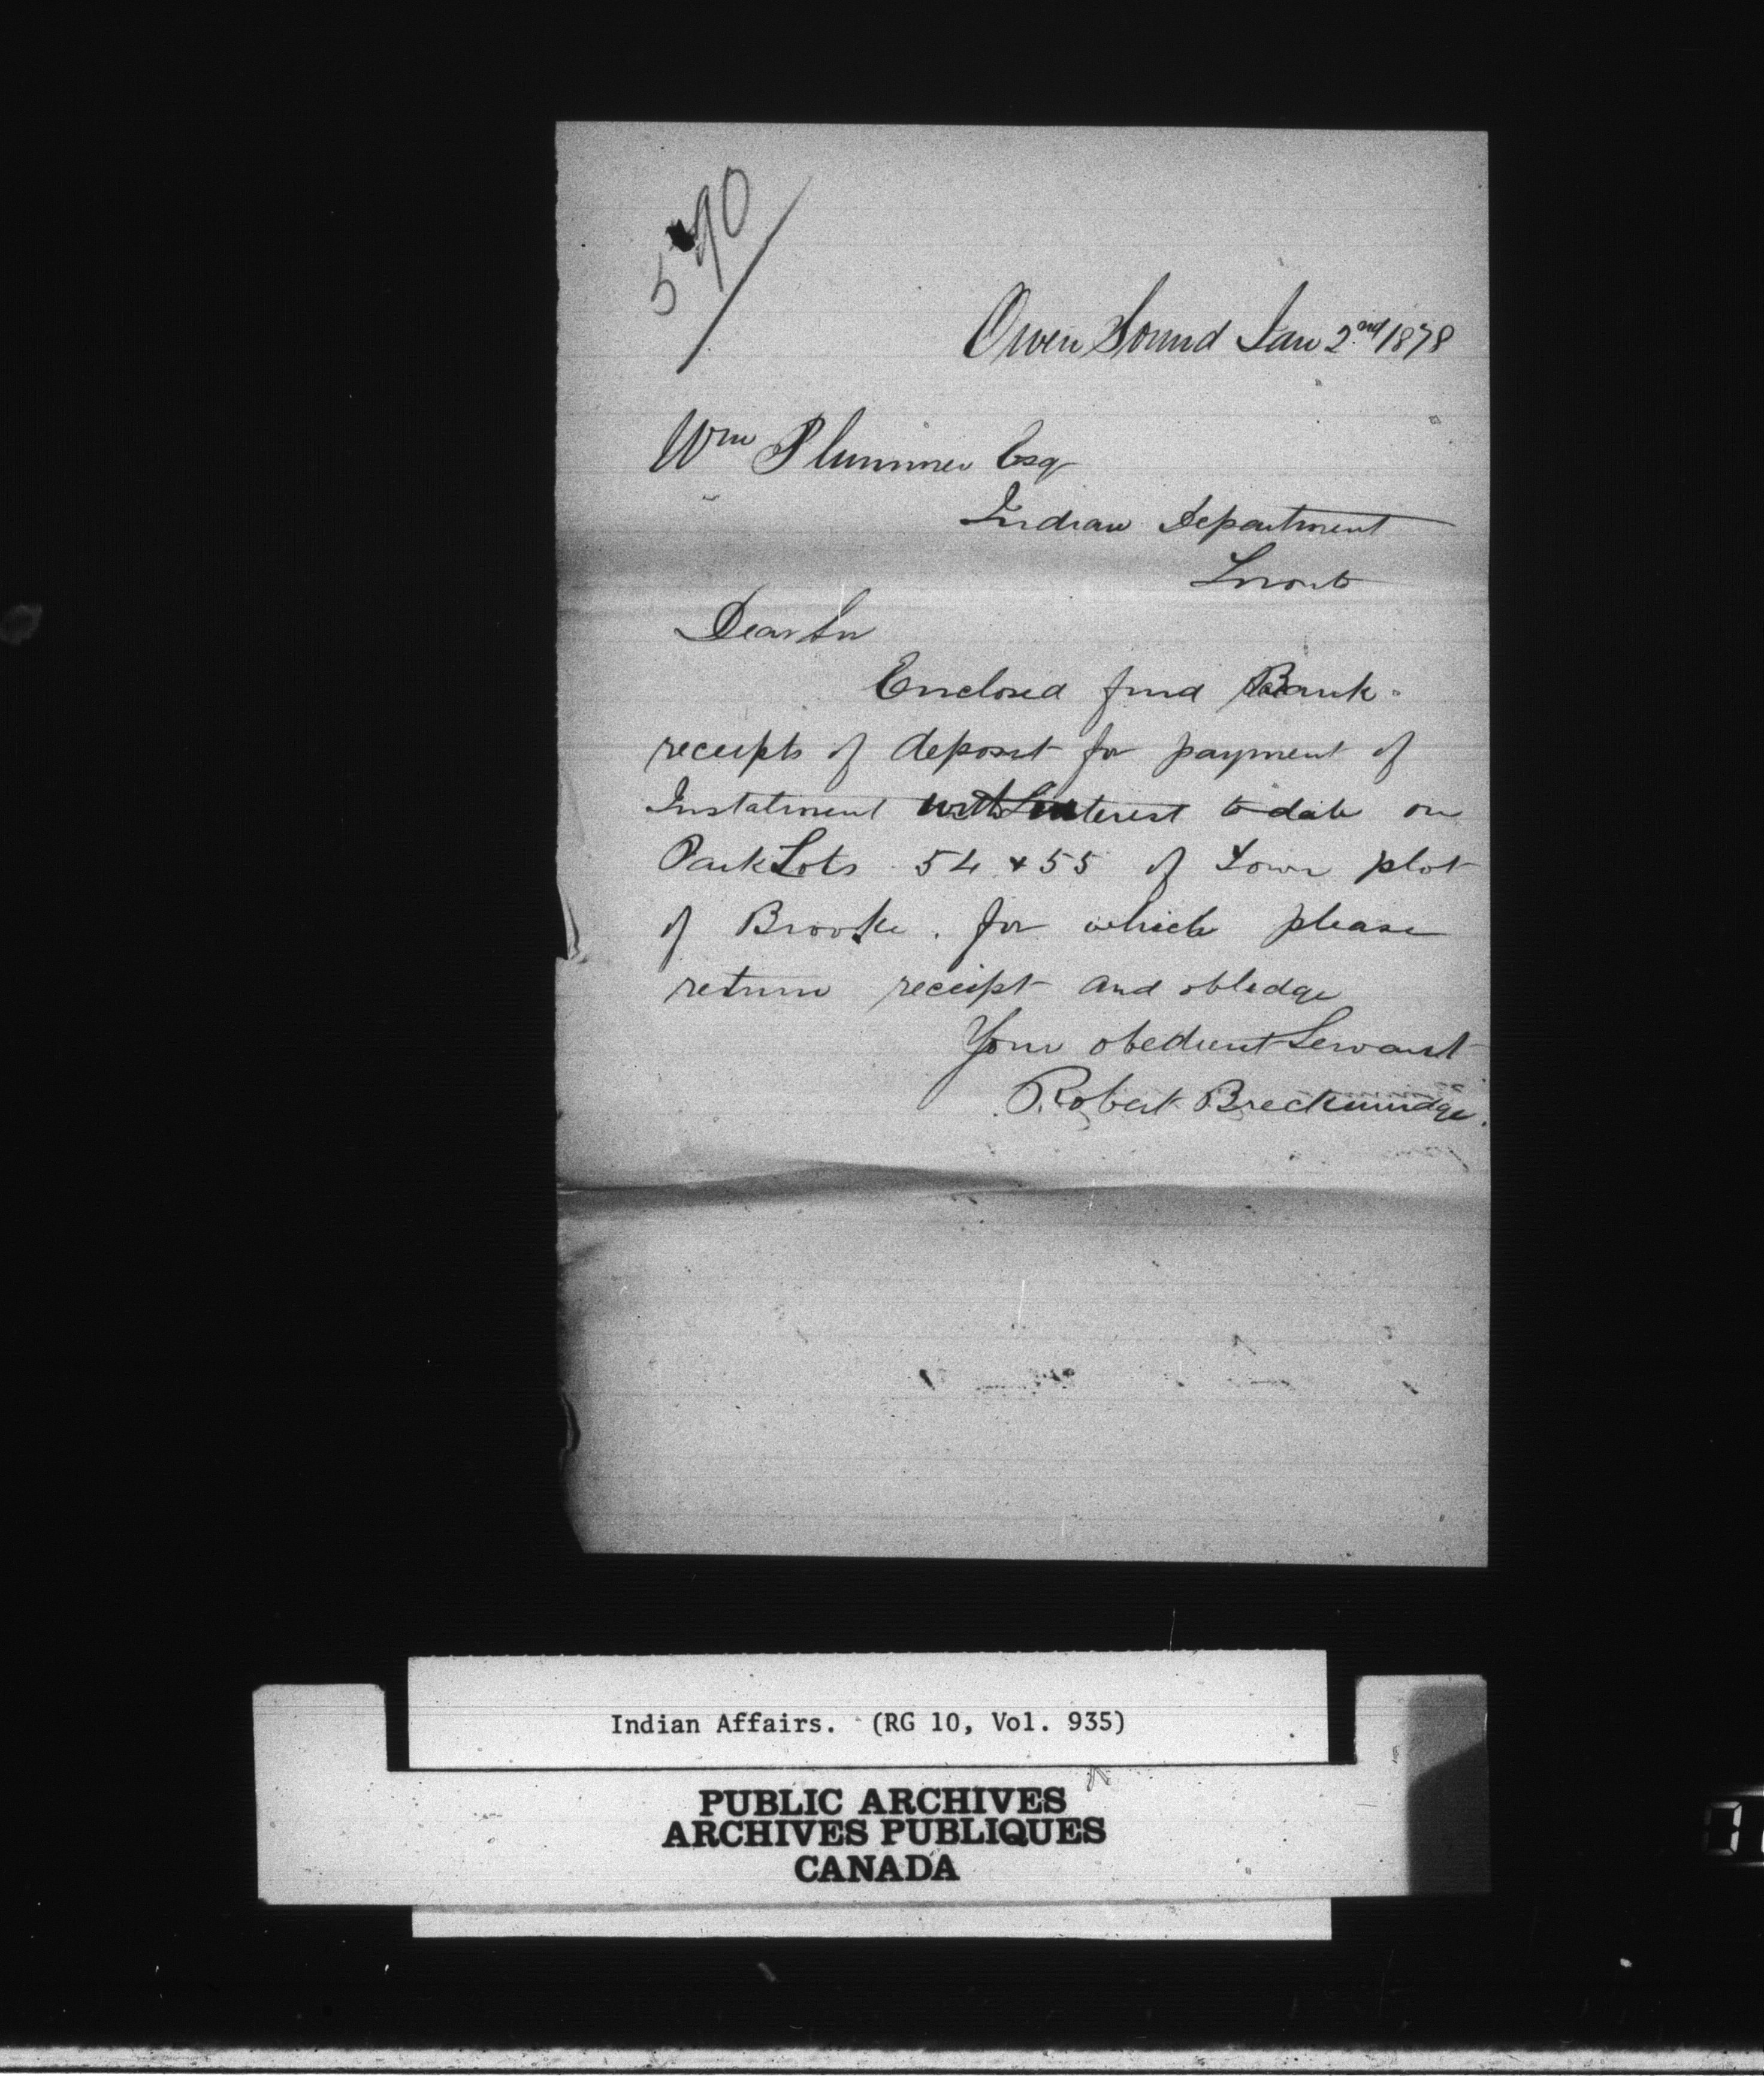 590
Owen Sound Jan 2nd 1878
Wm Plummer Esq
Indian Department
Toronto
Dear Sir
Enclosed find Bank
receipts of deposit for payment of
Instalment with Interest to date on
Park Lots 54 & 55 of Town plot
of Brooke. for which please
return receipt and obledge
Your obedient Servant
Robert Breckinridge.
Indian Affairs. (RG 10, Vol. 935)
PUBLIC ARCHIVES
ARCHIVES PUBLIQUES
CANADA